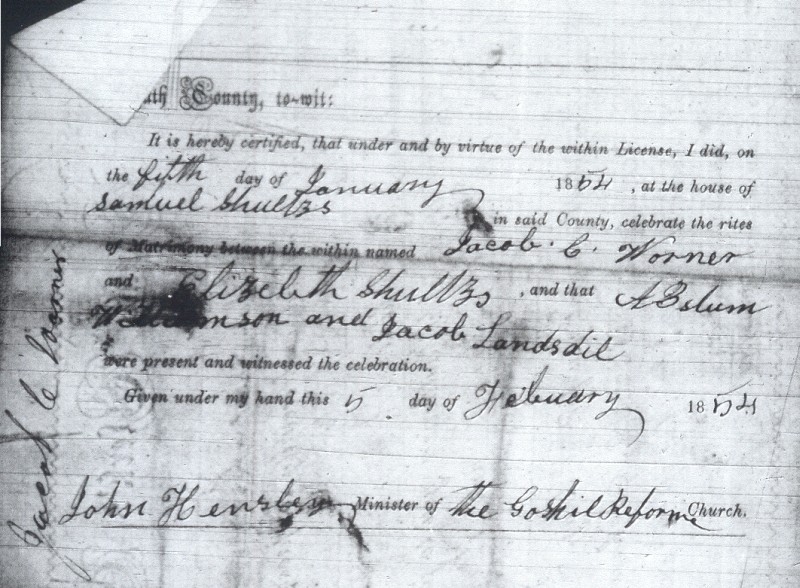 County, to-wit:
It is hereby certified, that under and by virtue of the within License, I did, on
the fifth day of January 1854, at the house of
Samuel Shultzs in said County, celebrate the rites
of Matrimony between the within named Jacob. C. Worner
and Elizebeth Shultzs, and that ABslum
and Jacob Landsdil
were present and witnessed the celebration.
Given under my hand this 5 day of Febuary 1854
John Hensley Minister of the Goshil Reforme Church.
Jacob C Worner